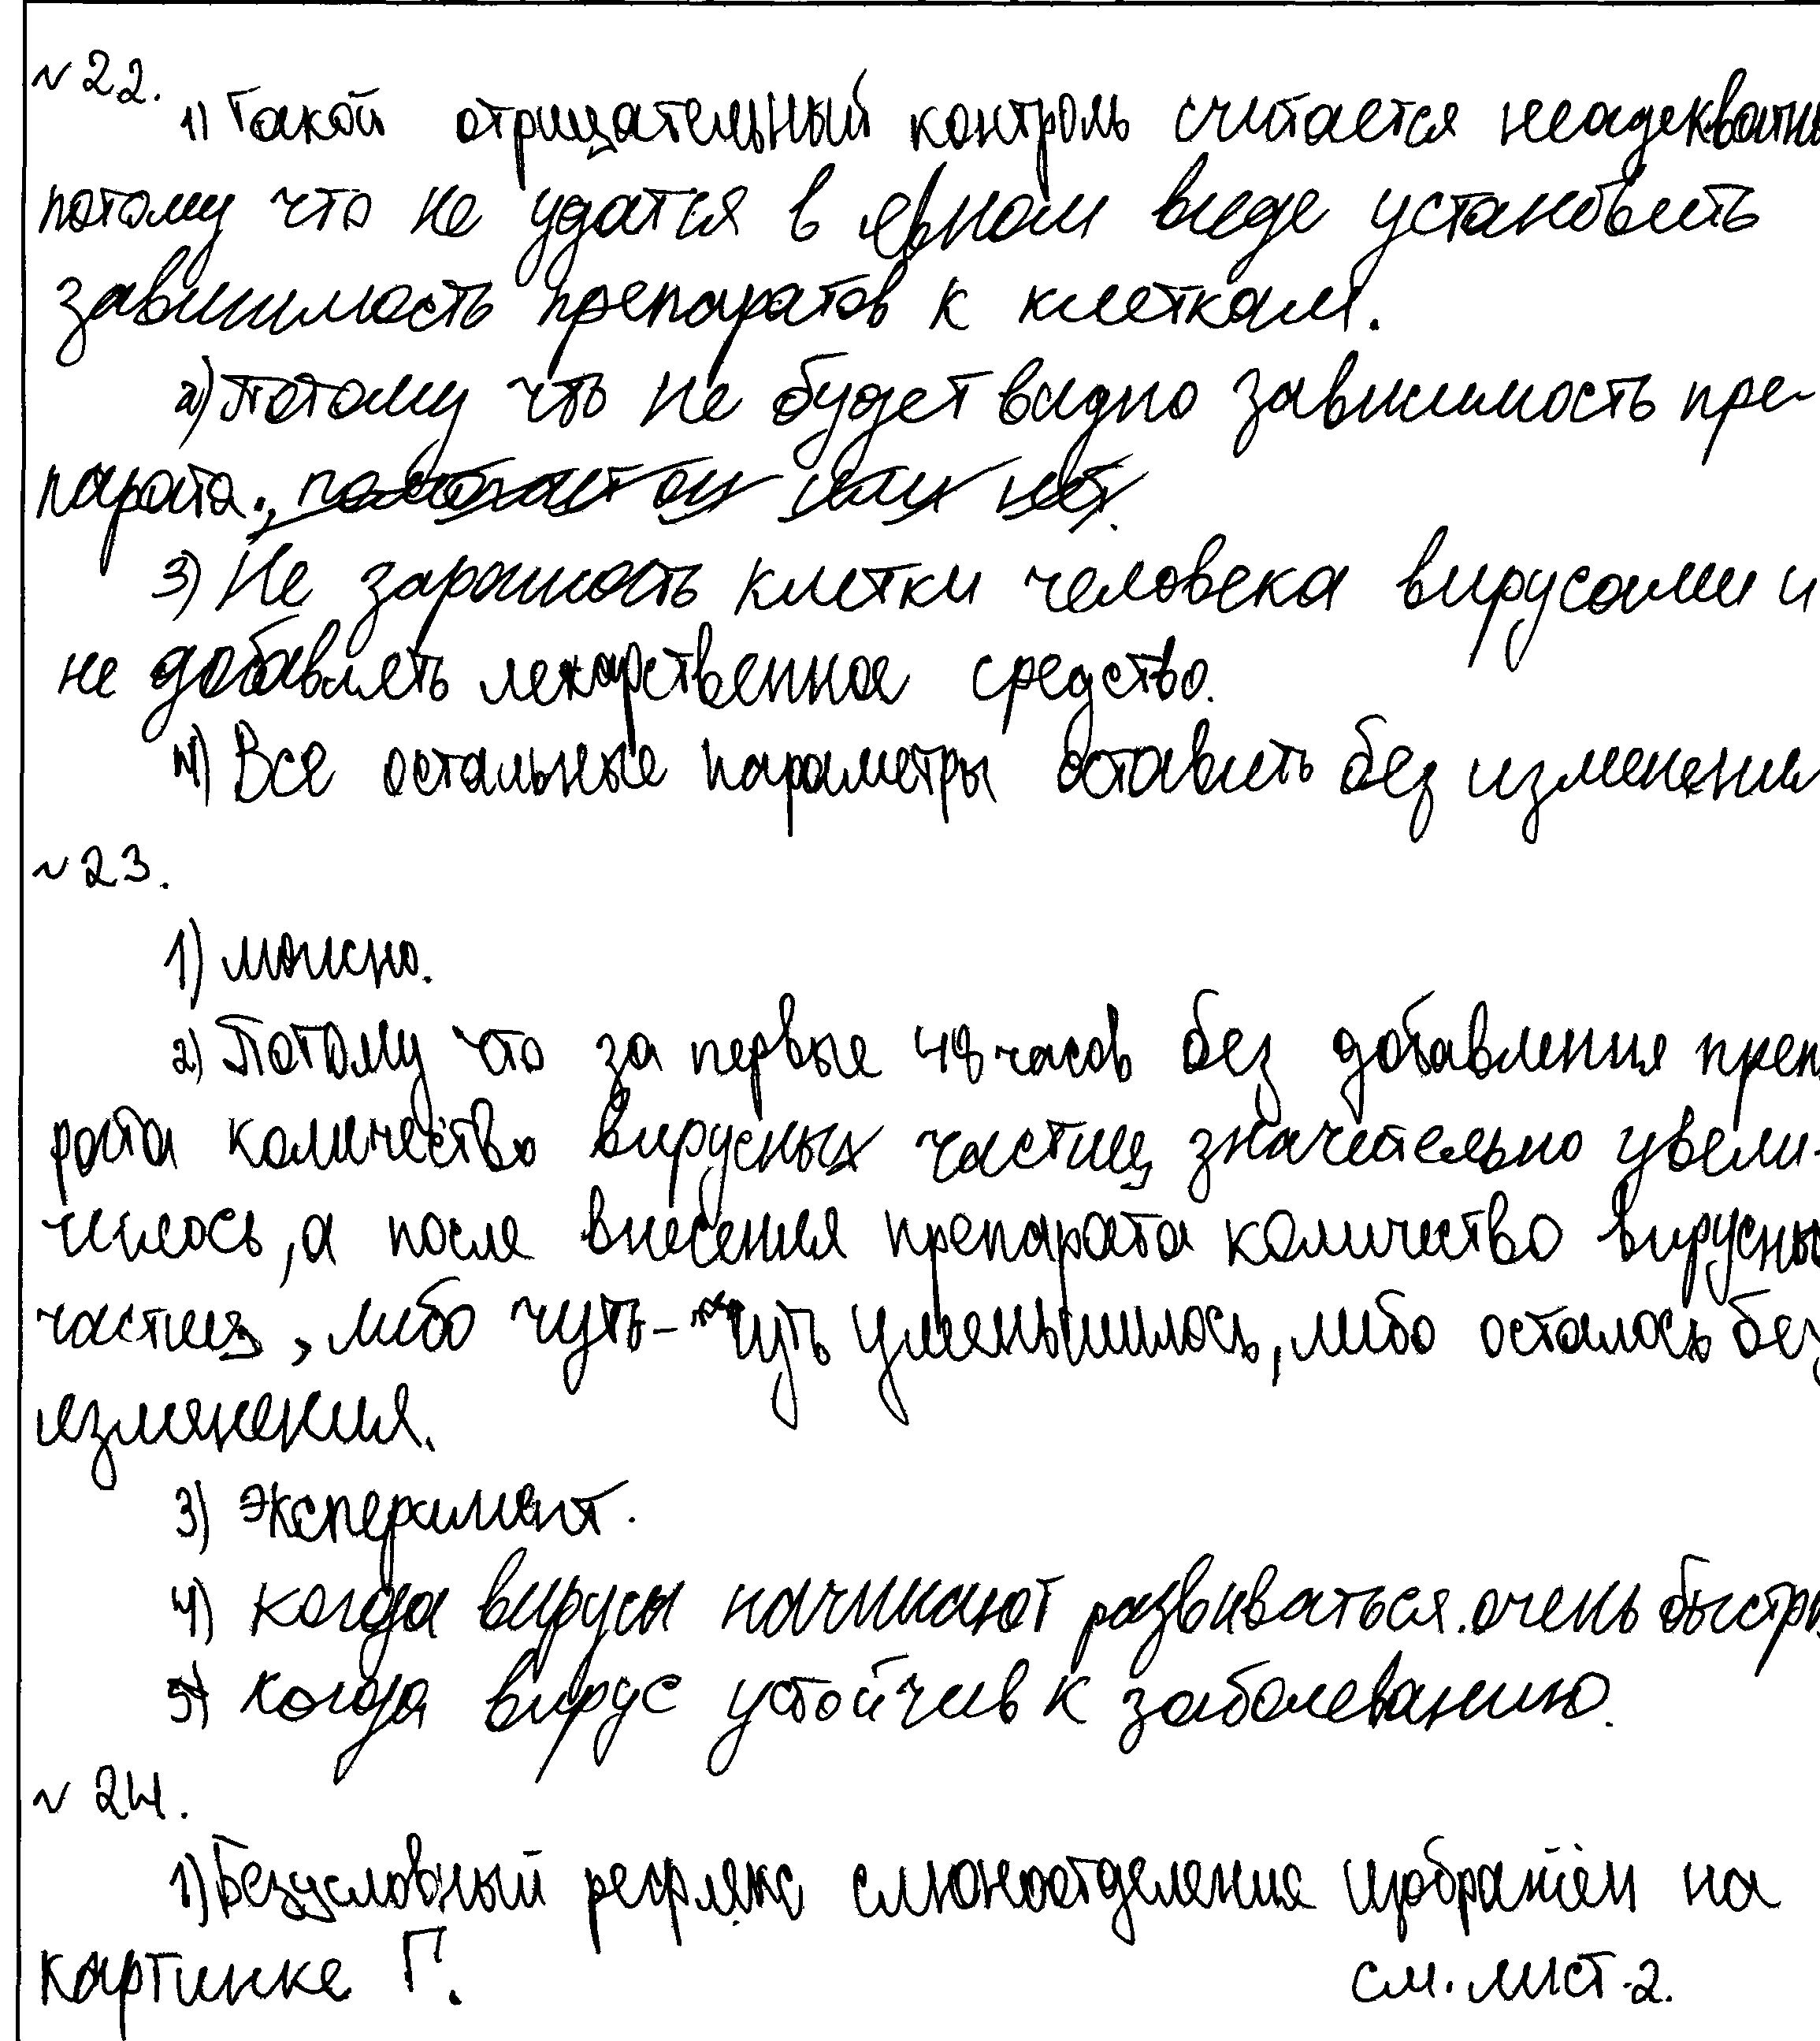 № 22.
1) Такой отрицательный контроль считается неадекватны
потому что не удатся в явном виде установить
зависимость препаратов к клеткам.
2) Потому что не будет видно зависимость пре-
парата., помогает он или нет.
3) Не заражать клетки человека вирусами и
не добавлять лекарственное средство.
4) Все остальные параметры оставить без изменения
№ 23.
1) можно.
2) Потому что за первые 48 часов без добавления преп
рата количество вирусных частиц значительно увели-
чилось, а после внесения препарата количество вирусны
частиц, либо чуть-чуть уменьшилось, либо осталось без
изменения.
3) эксперимент.
4) когда вирусы начинают развиваться очень быстро
5) когда вирус устойчив к заболеванию.
№ 24.
1) Безусловный рефлекс слюноотделения изображён на
картинке Г.
см. лист 2.